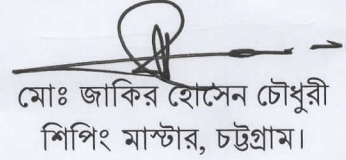 মোঃ জাকির হোসেন চৌধুরী
শিপিং মাস্টার, চট্টগ্রাম।